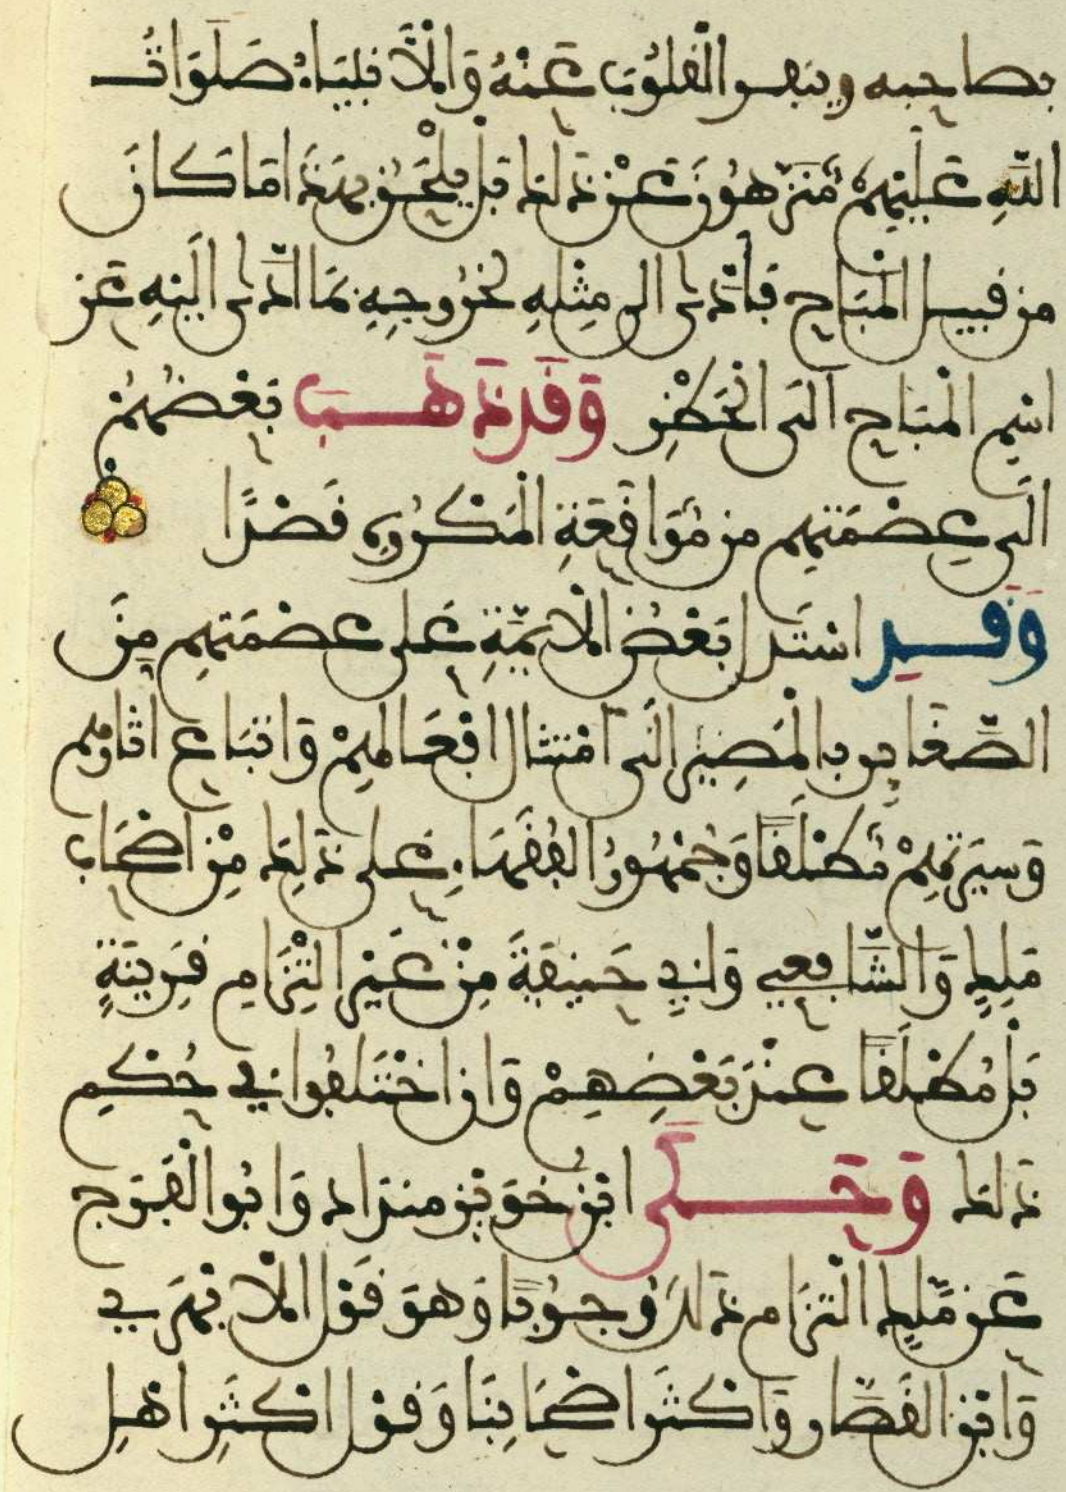 بصاحبه وينفر القلوب عَنْهُ وَالْأَنبِيَاءُ صَلَوَاتُ
اللَّهِ عَلَيْهِمْ مُنَزَّهُونَ عَنْ ذَلِكَ بَلْ يَلْحَقُ بِهَذَا مَا كَانَ
مِن قبيل الْمُبَاح فَأَدَّى إلى مِثْلِهِ لِخُرُوجِهِ بِمَا أَدَّى إلَيْهِ عَن
اسْمِ الْمُبَاح إلَى الْحَظْرِ وَقَدْ ذَهَبَ بَعْضُهُمْ
إلَى عِصْمَتِهِم مِن مُوَاقَعَةِ الْمَكْرُوهِ قَصْدًا
وَقَدِ اسْتَدَلَّ بَعْضُ الْأَئِمَّةِ عَلَى عِصْمَتِهِم مِنَ
الصَّغَائِرِ بِالْمَصِيرِ إلَى امْتِثَالِ أَفْعَالِهِمْ وَاتِّبَاعِ آثَارِهِم
وَسِيَرِهِمْ مُطْلَقًا وَجُمْهُورُ الْفُقَهَاءِ عَلَى ذَلِكَ مِنْ أَصْحَابِ
مَلِكٍ وَالشَّافِعِي وَأَبِي حَنِيفَةَ مِنْ غَيْرِ الْتِزَامِ قَرِينَةٍ
بَلْ مُطْلَقًا عِنْدَ بَعْضِهِمْ وَإِنِ اخْتَلَفُوا فِي حُكْمِ
ذَلِكَ وَحَكَى ابْنُ خُوَيْز مِنْدَاد وَأَبُو الْفَرَج
عَن مَلِكٍ الْتِزَامَ ذَلِكَ وُجُوبًا وَهُوَ قَوْلُ الْأَبْهَرِي
وَابْنِ الْقَصَّارِ وَأَكْثَرِ أَصْحَابِنَا وَقَوْلُ أَكْثَرِ أَهْلِ